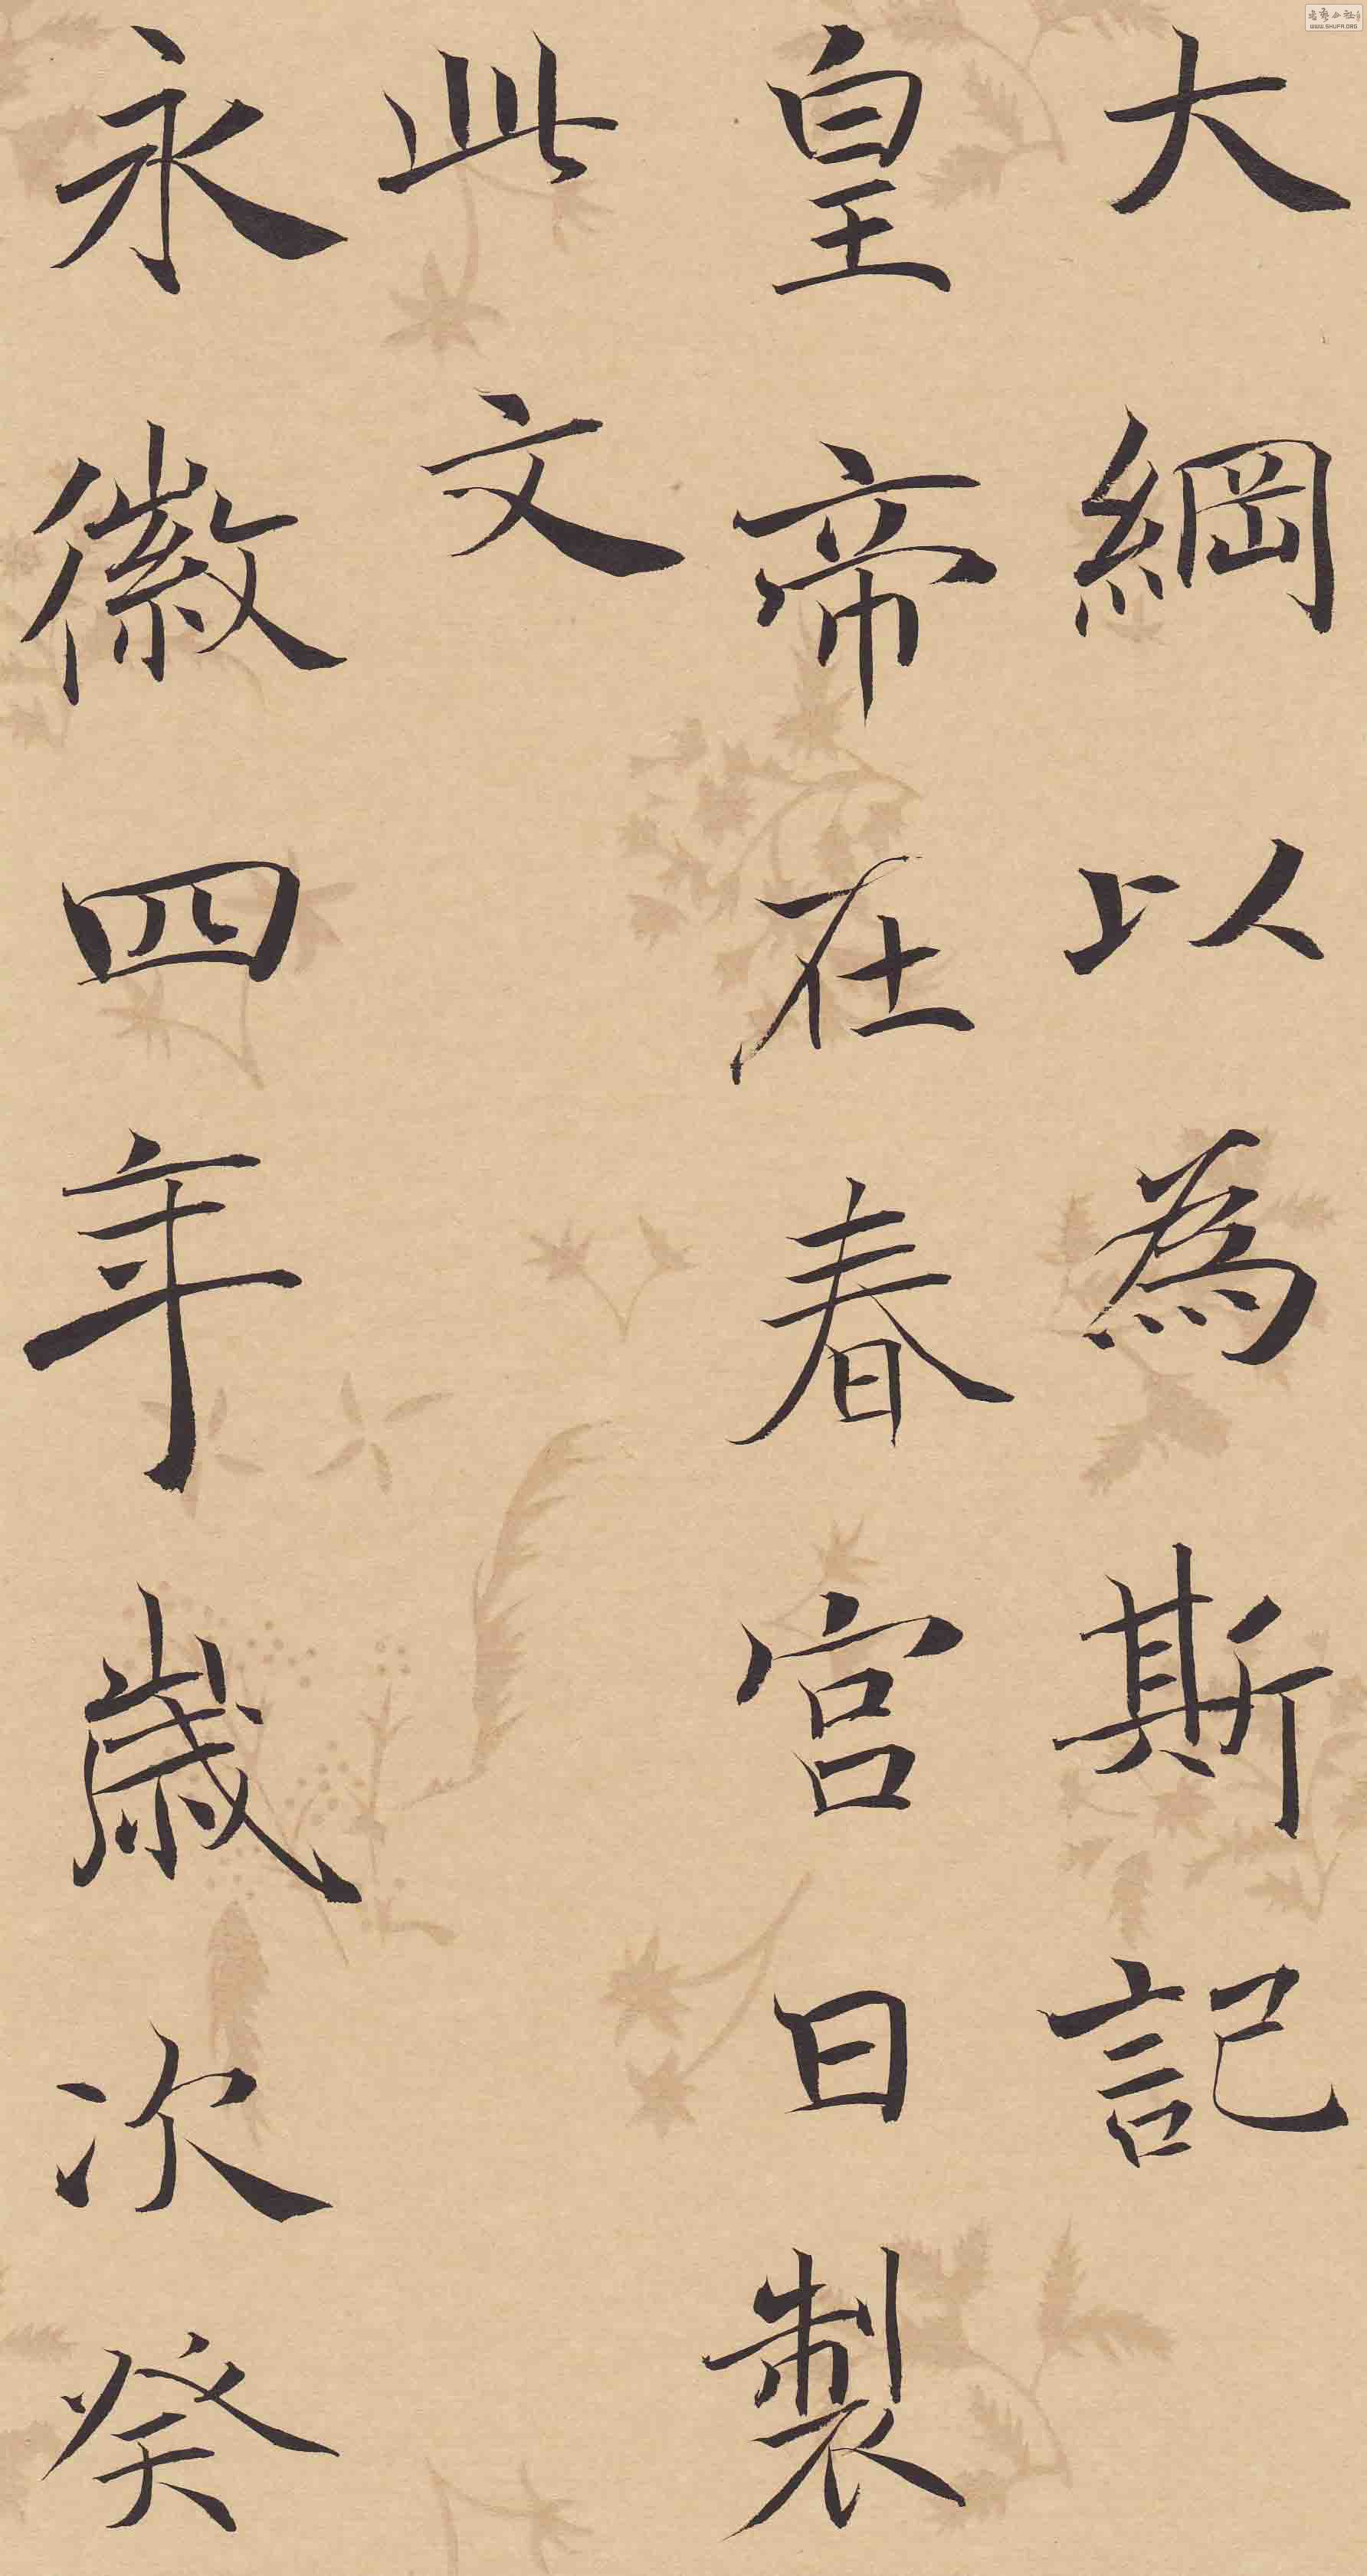 大綱以為斯記
皇帝在春宮日製
此文
永徽四年歲次癸
WWW.SHUFA.ORG